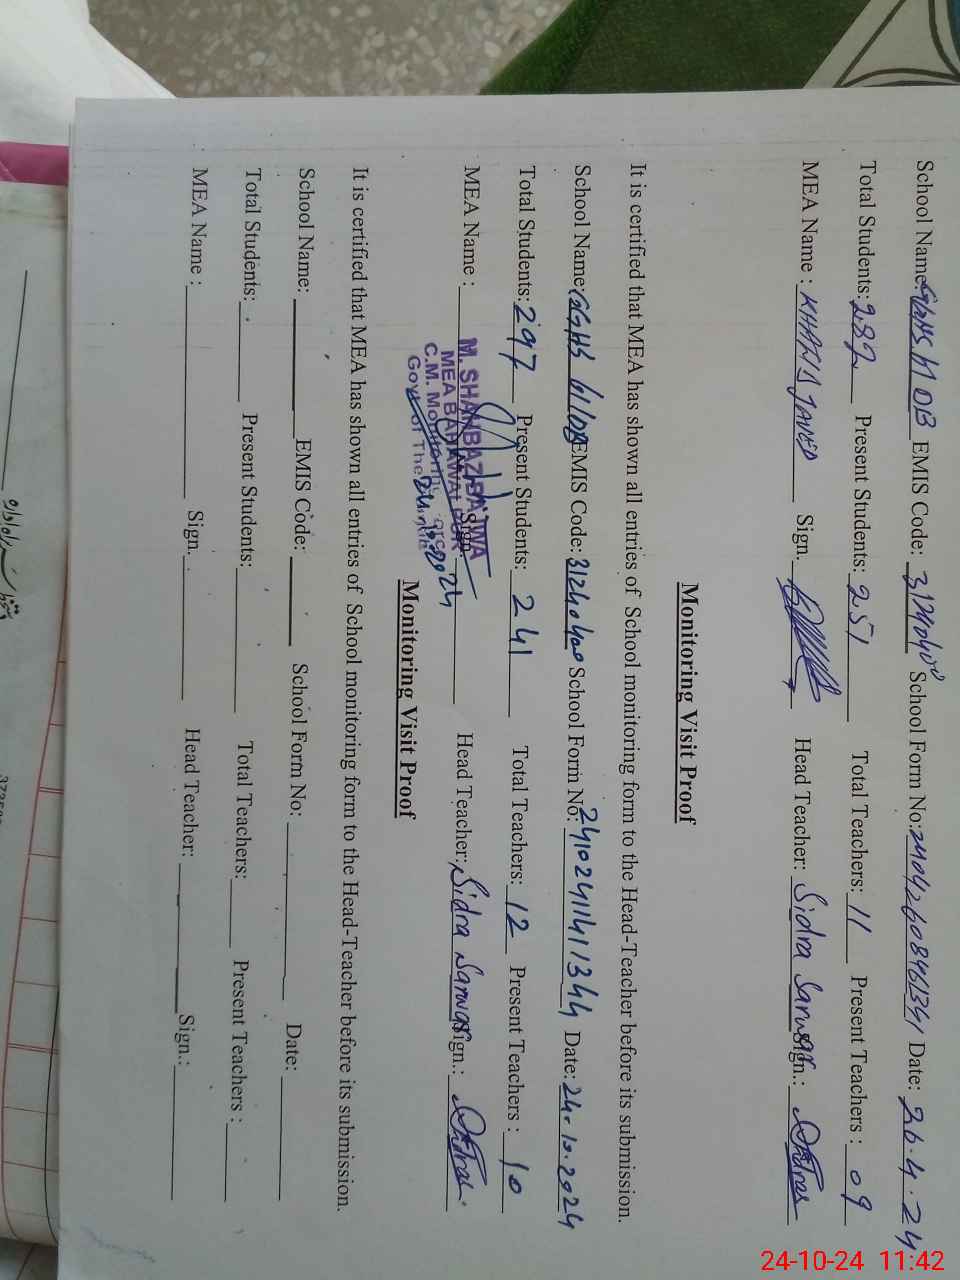 School Name: EMIS Code: 31240400 School Form No: Date: 26.4.24
Total Students: 282 Present Students: 251 Total Teachers: 11 Present Teachers : 09
MEA Name : KHALID JAVED Sign. Head Teacher: Sidra Sarwar Sign.:
Monitoring Visit Proof
It is certified that MEA has shown all entries of School monitoring form to the Head-Teacher before its submission.
School Name: GGHS 61/DB EMIS Code: 31240400 School Form No: 24102411411344 Date: 24.10.2024
Total Students: 297 Present Students: 241 Total Teachers: 12 Present Teachers : 10
MEA Name : Sign. Head Teacher: Sidra Sarwar Sign.:
M. SHAHBAZ BAJWA
MEA BAHAWALPUR
C.M. Monitoring
Govt of The
24.10.2024
Monitoring Visit Proof
It is certified that MEA has shown all entries of School monitoring form to the Head-Teacher before its submission.
School Name: EMIS Code: School Form No: Date:
Total Students: Present Students: Total Teachers: Present Teachers :
MEA Name : Sign. Head Teacher: Sign.:
24-10-24 11:42